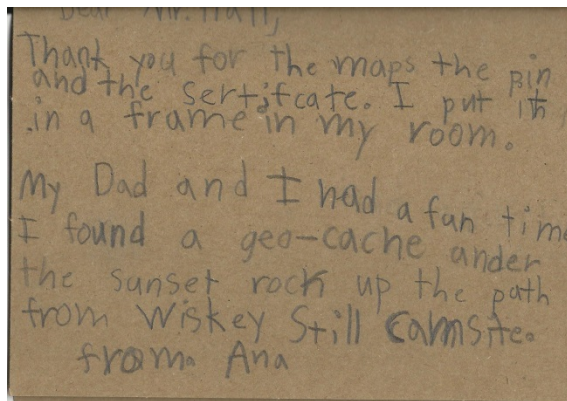 Dear Mr. Hall,
Thank you for the maps the pin
and the sertifcate. I put it
in a frame in my room.
My Dad and I had a fun time
I found a geo-cache ander
the sunset rock up the path
from Wiskey Still camsite.
from Ana